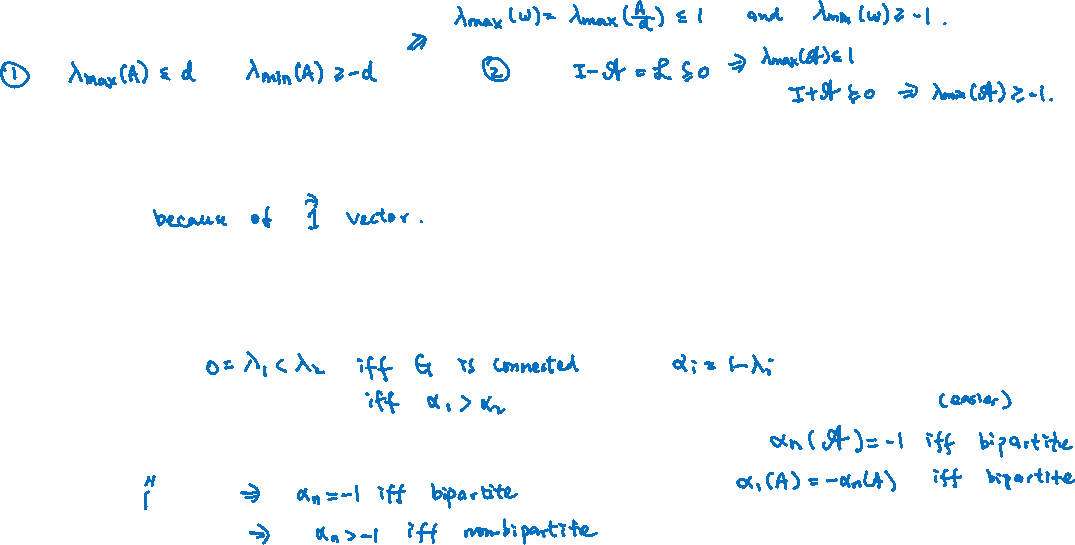 ⇒ λmax(W) = λmax(A/d) ≤ 1 and λmin(W) ≥ -1.
① λmax(A) ≤ d λmin(A) ≥ -d ② I - 𝒜 = ℒ ≽ 0 ⇒ λmax(𝒜) ≤ 1
I + 𝒜 ≽ 0 ⇒ λmin(𝒜) ≥ -1.
because of 1⃗ vector.
0 = λ₁ < λ₂ iff G is connected αᵢ = 1 - λᵢ
iff α₁ > α₂
(easier)
αn(𝒜) = -1 iff bipartite
α₁(A) = -αn(A) iff bipartite
⇒ αn = -1 iff bipartite
⇒ αn > -1 iff nonbipartite